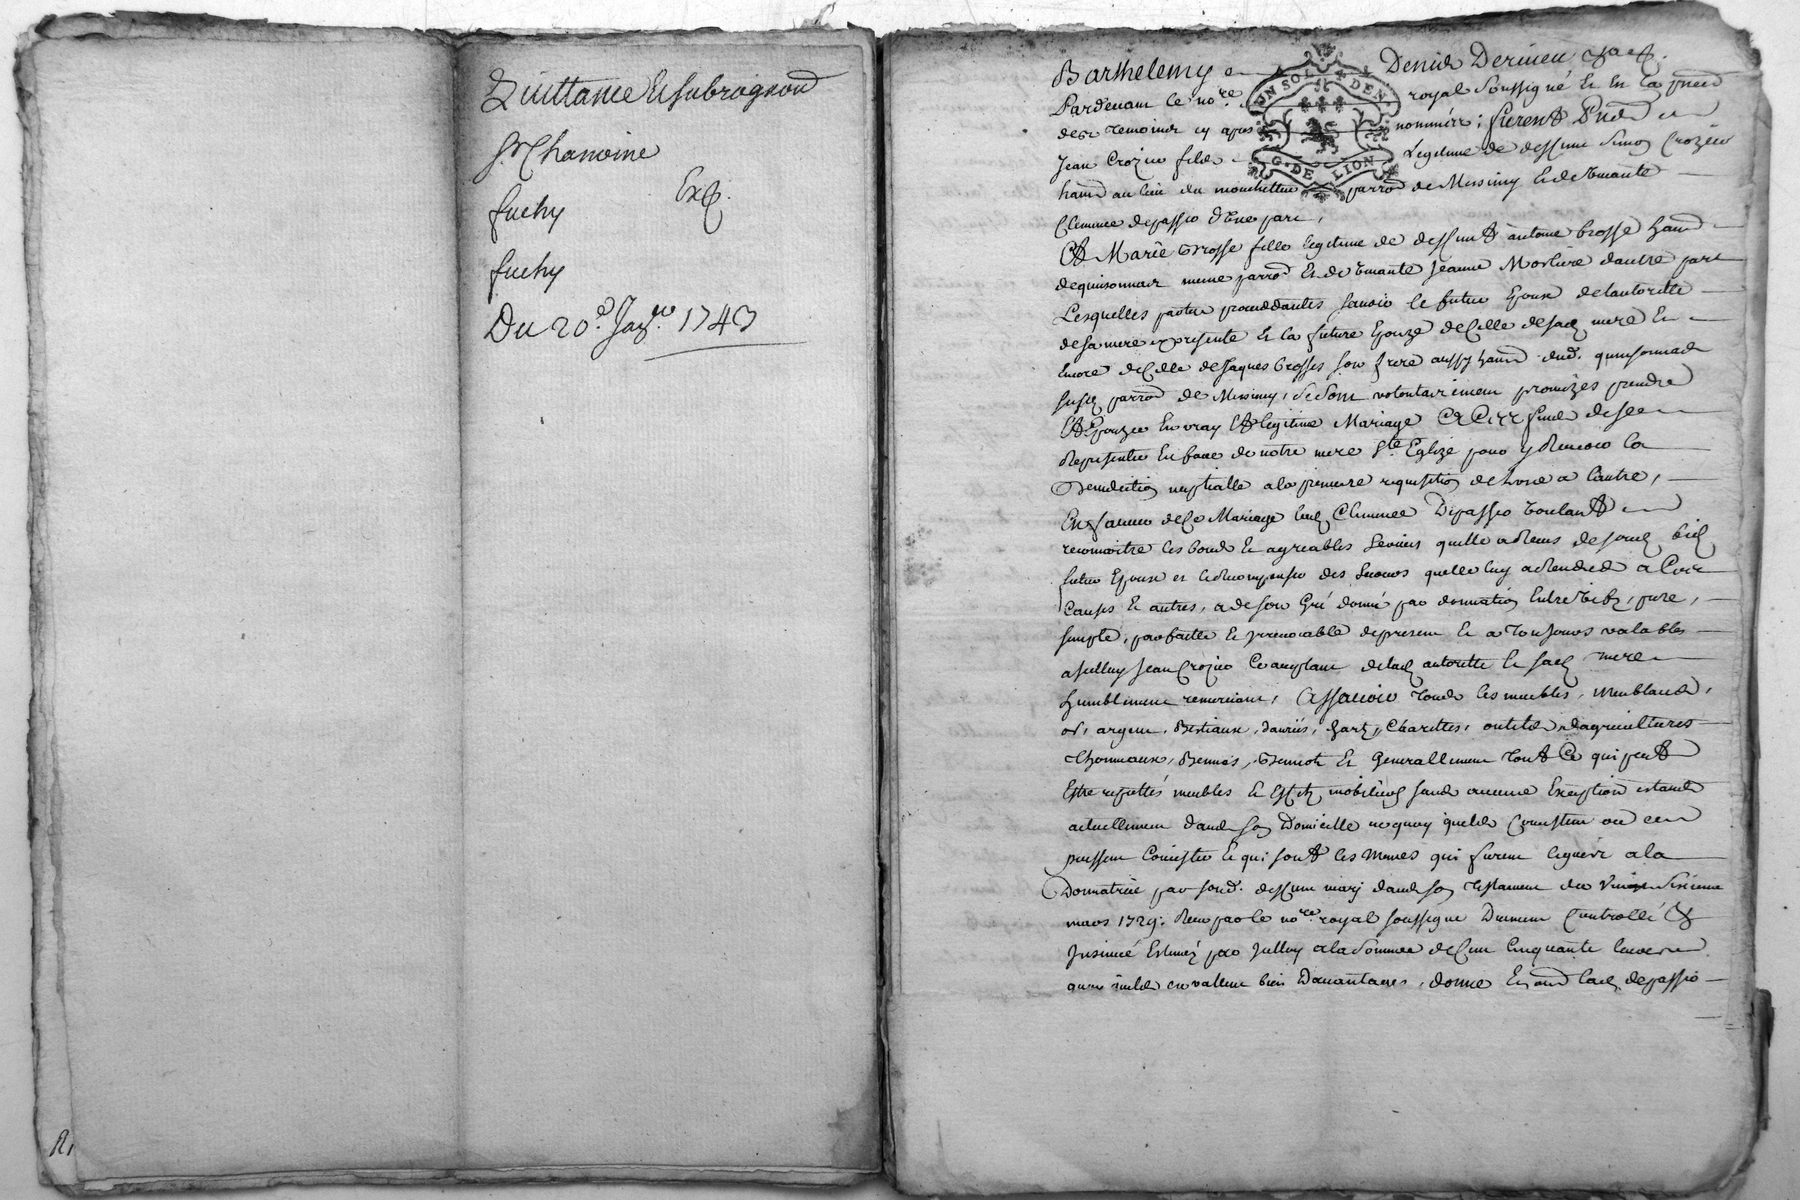 Quittance & subrogaon
Sr Chanoine
fuchy
Exp.
fuchy
Du 20e. Jayer 1743
R,
Barthelemy Denid Derieu
UN SOL 4 DEN.
G. DE LION
Pardevant le nore. royal soussigné Et En la pnce
des temoins cy apres nommés; furent Pnts
Jean Crozier fils Legitime de deffunt Simon Crozier
habt au lieu du parroe de Messimy & de vivante
Clemence depassio d'Une part,
Et Marie Brosse fille legitime de deffunt antoine brosse habt
dequinsonnat meme parroe Et de vivante Jeanne Morliere dautre part
Lesquelles parties procedantes scavoir le futur Epoux de lautoritte
de sa mere cy presente Et la future Epouze de Celle de sad mere Et
Encore de Celle de Jaques brosses son frere aussy habt dud. quinsonnat
susd parroe de Messimy, se sont volontairement promizes prendre
Et Epouzer En vray Et legitime Mariage Et a Cette fin de se
Representer En face de notre mere Ste Eglize pour y Recevoir la
Benediction nuptialle a la premiere requisition de Lune a Lautre,
En faveur de Ce Mariage lad Clemence Depassio voulant
reconnoitre les bons Et agreables services quelle a Receus de soud fils
futur Epoux et le Recompenser des secours quelle luy a Rendus a Ces
Causes Et autres, a de son Gré donné par donnation Entre vifs, pure,
simple, parfaitte Et irrevocable de present Et a Toujours valable
a Jcelluy Jean Crozier acceptant de lad autoritte de sad mere
humblement remerciant, Assavoir tous les meubles, meublants,
or, argent, Bestiaux, danrées, harts, Charettes, outils dagricultures
Thonneaux, Bennes, Bennots Et Generallement Tout Ce qui peut
Estre reputtés meubles Et Effets mobiliers sans aucune Exception estants
actuellement dans son Domicille nequoy quils Consistent ou
puissent Consister Et qui sont les memes qui furent legués a la
Donnatrice par soud. deffunt mary dans son testament du Vingt Sixieme
mars 1729. Receu par le nore. royal soussigné Duement Controllé &
Insinué Estimés par Jcelluy a la somme de Cent Cinquante livres
quoy quils en vallent bien Davantages, donne En outre lad depassio